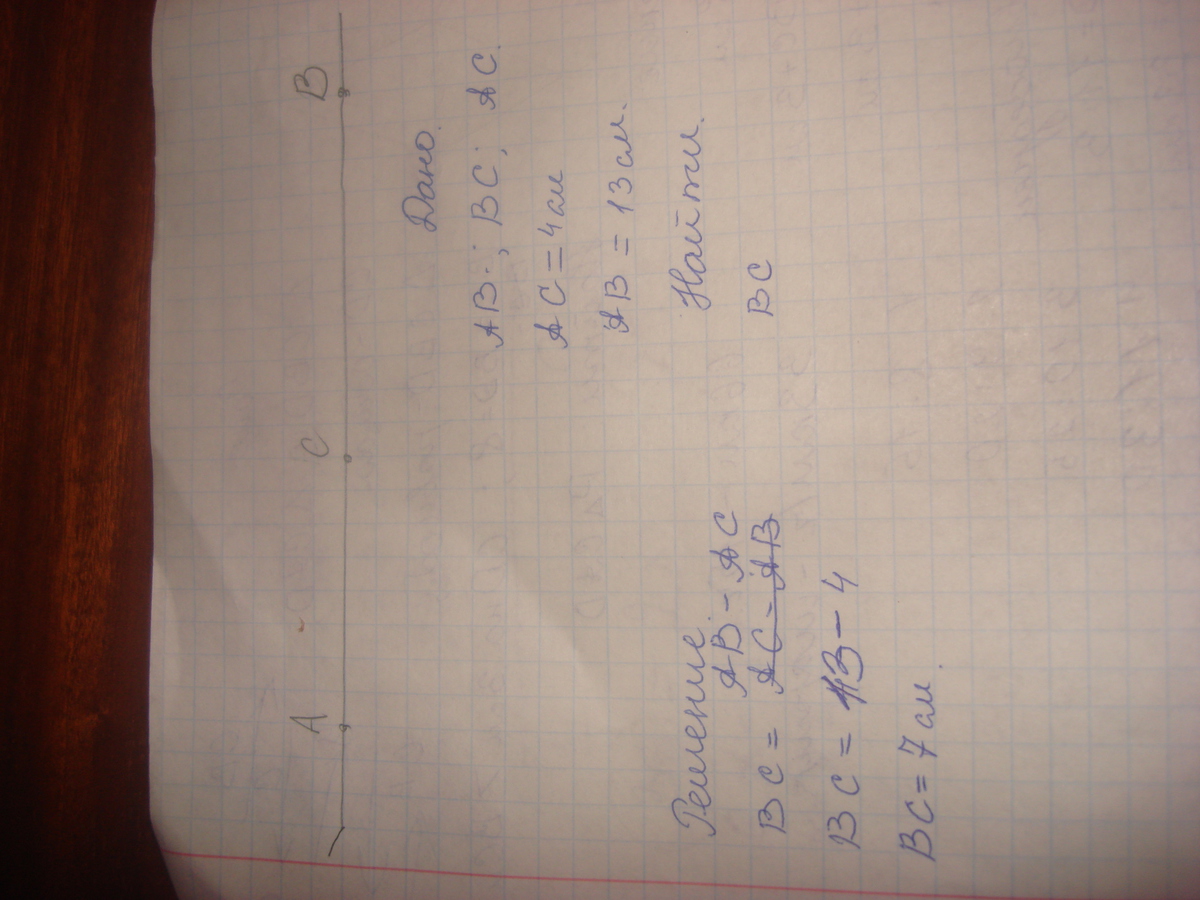 A C B
Дано.
AB; BC; AC.
AC = 4 см
AB = 13 см.
Найти.
BC
Решение.
AB - AC
BC = AC - AB
BC = 13 - 4
BC = 7 см.